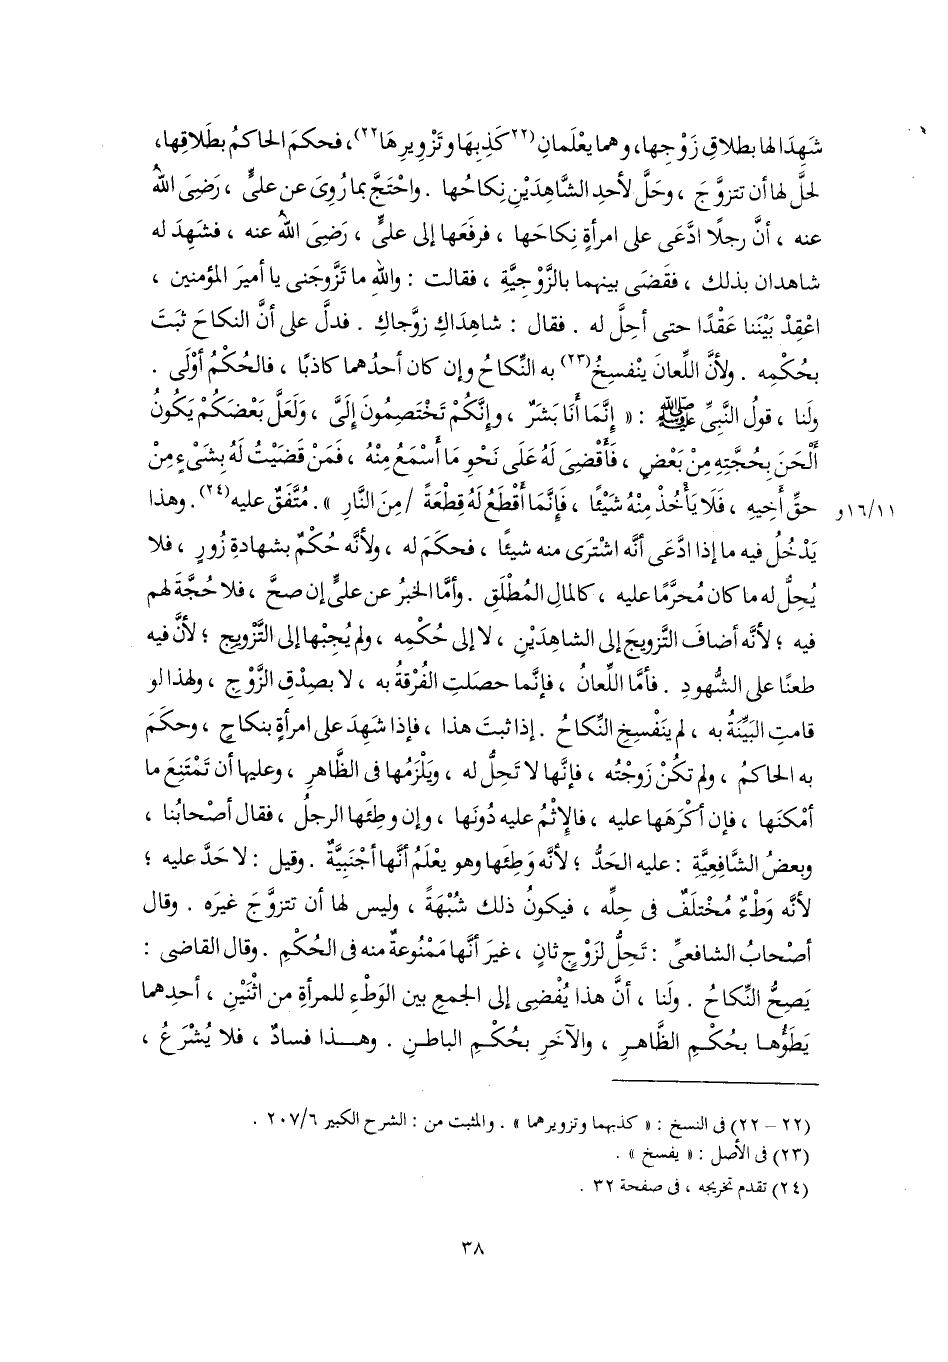 شَهِدَا لها بطلاقِ زَوْجِها، وهما يعْلَمانِ (٢٢كَذِبِهَا وتَزْويرِهَا٢٢)، فحكمَ الحاكمُ بطَلاقِها،
لحلَّ لها أن تتزوَّجَ ، وحَلَّ لأحدِ الشَّاهدَيْنِ نِكاحُها . واحْتَجَّ بما رُوِىَ عن علىٍّ ، رَضِىَ اللهُ
عنه ، أنَّ رجلًا ادَّعَى على امرأةٍ نِكاحَها ، فرفَعَها إلى علىٍّ ، رَضِىَ اللهُ عنه ، فشَهِدَ له
شاهدان بذلك ، فقَضَى بينهما بالزَّوْجيَّةِ ، فقالت : واللهِ ما تَزَّوجَنى يا أميرَ المؤمنين ،
اعْقِدْ بَيْنَنا عَقْدًا حتى أحِلَّ له . فقال : شاهِدَاكِ زوَّجاكِ . فدلَّ على أنَّ النكاحَ ثبَتَ
بحُكْمِه . ولأنَّ اللِّعانَ ينْفسِخُ(٢٣) به النِّكاحُ وإن كان أحدُهما كاذبًا ، فالحُكْمُ أوْلَى .
ولَنا ، قولُ النَّبىِّ ﷺ : « إنَّمَا أَنَا بَشَرٌ ، وإنَّكُمْ تَخْتَصِمُونَ إلَىَّ ، ولَعَلَّ بَعْضَكُمْ يَكُونُ
أَلْحَنَ بِحُجَّتِهِ مِنْ بَعْضٍ ، فَأَقْضِىَ لَهُ عَلَى نَحْوِ مَا أَسْمَعُ مِنْهُ ، فَمَنْ قَضَيْتُ لَهُ بِشَىْءٍ مِنْ
حقِّ أَخِيهِ ، فَلَا يَأْخُذْ مِنْهُ شَيْئًا ، فَإِنَّمَا أَقْطَعُ لَهُ قِطْعَةً / مِنَ النَّارِ » . مُتَّفَقٌ عليه(٢٤) . وهذا
١٦/١١و
يَدْخُلُ فيه ما إذا ادَّعَى أنَّه اشْتَرَى منه شيئًا ، فحكَمَ له ، ولأنَّه حُكْمٌ بشهادةِ زُورٍ ، فلا
يُحِلُّ له ما كان مُحرَّمًا عليه ، كالمالِ المُطْلَقِ . وأمَّا الخبرُ عن علىٍّ إن صحَّ ، فلا حُجَّةَ لهم
فيه ؛ لأنَّه أضافَ التَّزويجَ إلى الشاهدَيْنِ ، لا إلى حُكْمِه ، ولم يُجِبْها إلى التَّزْويجِ ؛ لأنَّ فيه
طعنًا على الشُّهودِ . فأمَّا اللِّعانُ ، فإنَّما حصَلتِ الفُرْقةُ به ، لا بصِدْقِ الزَّوْجِ ، ولهذا لو
قامتِ البَيِّنَةُ به ، لم ينَفْسِخِ النِّكاحُ . إذا ثبتَ هذا ، فإذا شَهِدَ على امرأةٍ بنكاحٍ ، وحكَمَ
به الحاكمُ ، ولم تكُنْ زَوْجتُه ، فإنَّها لا تَحِلُّ له ، ويَلْزَمُها فى الظَّاهرِ ، وعليها أن تَمْتَنِعَ ما
أمْكنَها ، فإن أكْرَهَها عليه ، فالإِثْمُ عليه دُونَها ، وإن وطِئَها الرجلُ ، فقال أصْحابُنا ،
وبعضُ الشَّافعِيَّةِ : عليه الحَدُّ ؛ لأنَّه وَطِئَها وهو يعْلَمُ أنَّها أجْنَبِيَّةٌ . وقيل : لا حَدَّ عليه ؛
لأنَّه وَطْءٌ مُخْتلَفٌ فى حِلِّه ، فيكونُ ذلك شُبْهَةً ، وليس لها أن تتزوَّجَ غيرَه . وقال
أصْحابُ الشافعىِّ : تَحِلُّ لزَوْجٍ ثانٍ ، غيرَ أنَّها مَمْنُوعةٌ منه فى الحُكْمِ . وقال القاضى :
يَصِحُّ النِّكاحُ . ولَنا ، أنَّ هذا يُفْضِى إلى الجمعِ بين الوَطْءِ للمرأةِ من اثْنَيْنِ ، أحدِهما
يَطَؤُها بحُكْمِ الظَّاهرِ ، والآخَرِ بحُكْمِ الباطنِ . وهــذا فسادٌ ، فلا يُشْرَعُ ،
(٢٢ - ٢٢) فى النسخ : « كذبهما وتزويرهما » . والمثبت من : الشرح الكبير ٢٠٧/٦ .
(٢٣) فى الأصل : « يفسخ » .
(٢٤) تقدم تخريجه ، فى صفحة ٣٢ .
٣٨